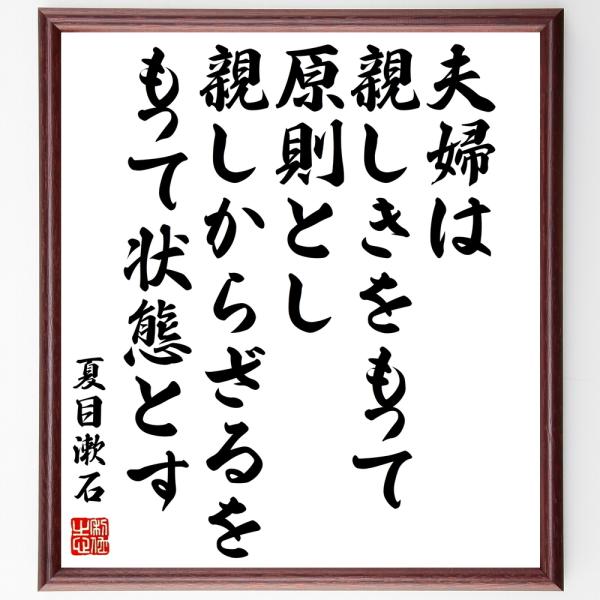 夫婦は
親しきをもって
原則とし
親しからざるを
もって状態とす
夏目漱石